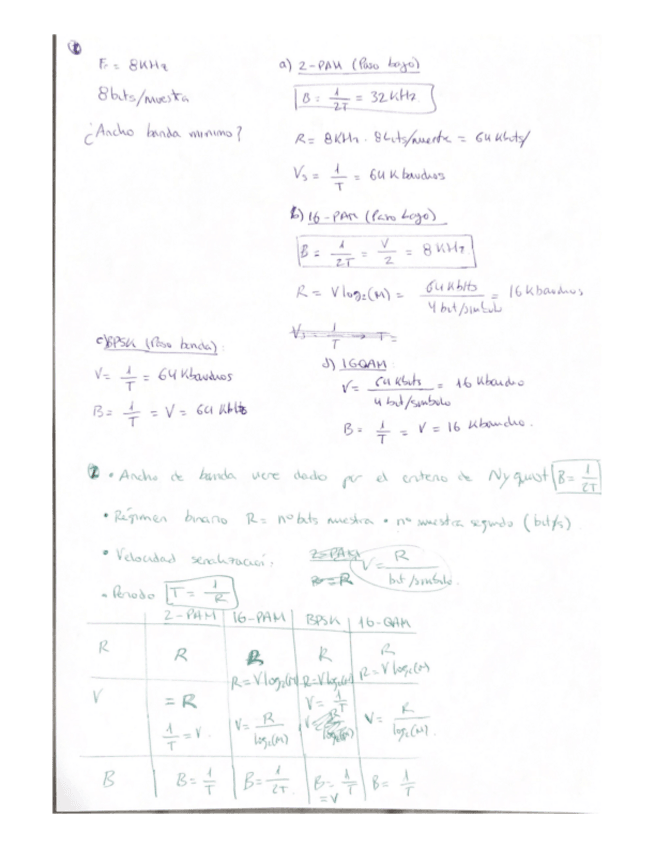 ①
Fr = 8KHz
8bits/muestra
¿Ancho banda minimo?
a) 2-PAM (Paso bajo)
B = 1/2T = 32KHz
R = 8KHz · 8bits/muestra = 64 Kbits/
Vs = 1/T = 64 Kbaudios
b) 16-PAM (Paso bajo)
B = 1/2T = V/2 = 8 KHz
R = V log₂(M) = 64 Kbits / 4 bit/simbolo = 16 Kbaudios
Vs = 1/T → T =
c) BPSK (Paso banda):
V = 1/T = 64 Kbaudios
B = 1/T = V = 64 KHz
d) 16QAM
V = 64 Kbits / 4 bit/simbolo = 16 Kbaudio
B = 1/T = V = 16 Kbaudio.
2 • Ancho de banda viene dado por el criterio de Nyquist B = 1/2T
• Régimen binario R = nº bits muestra • nº muestra segundo (bit/s)
• Velocidad señalización: 2-PAM V = R / bit/simbolo.
R
• Periodo T = 1/R
2-PAM 16-PAM BPSK 16-QAM
R R R R R
R = V log₂(M) R = V log₂(M) R = V log₂(M)
V = R V = 1/T
1/T = V. V = R/log₂(M) V = R/log₂(M) V = R/log₂(M)
B B = 1/T B = 1/2T B = 1/T = V B = 1/T